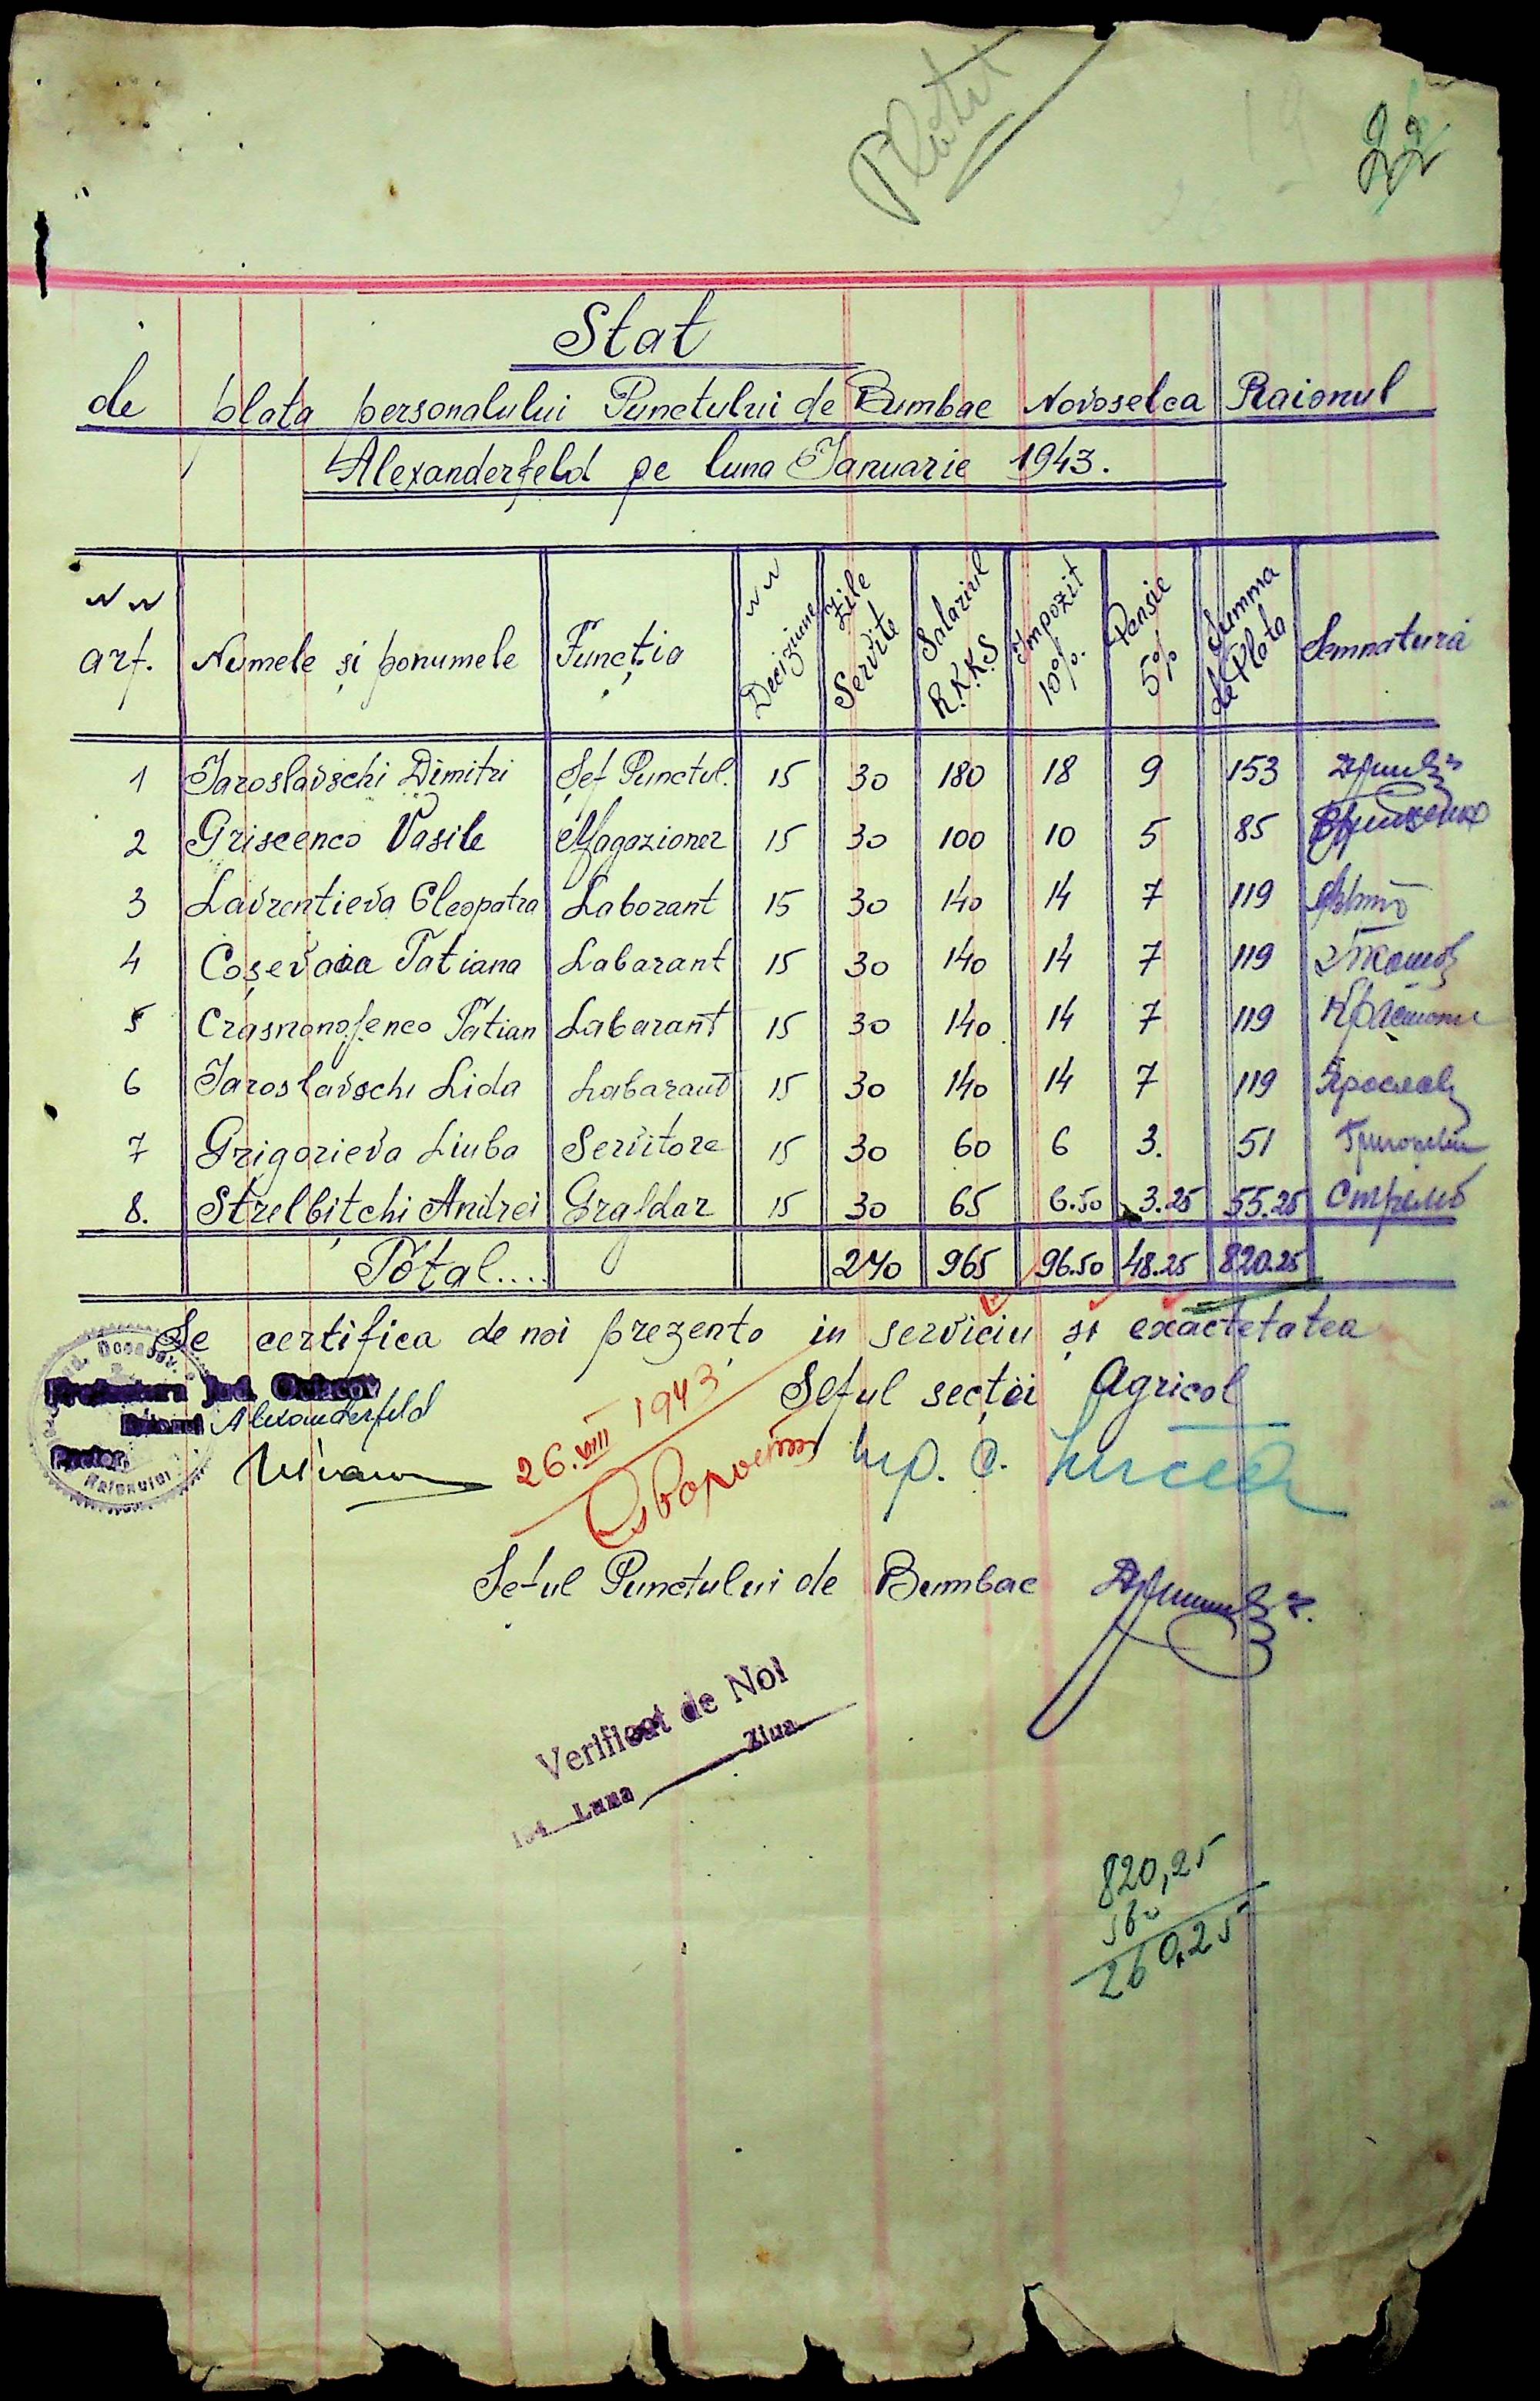 Platit
22
Stat
de plata personalului Punctului de Bumbac Novoselca Raionul
Alexanderfeld pe luna Januarie 1943.
NN art. Numele și ponumele Funcția NN Deciziune Zile Servite Salariul R.K.K.S Impozit 10%. Pensie 5% Summa de Plata Semnatura
1 Iaroslavschi Dimitri Șef Punctul. 15 30 180 18 9 153
2 Griscenco Vasile Magazioner 15 30 100 10 5 85
3 Lavrentieva Cleopatra Laborant 15 30 140 14 7 119
4 Coșevaia Tatiana Labarant 15 30 140 14 7 119
5 Crasnonosenco Tatian Labarant 15 30 140 14 7 119
6 Iaroslavschi Lida Labarant 15 30 140 14 7 119 Ярослав
7 Grigorieva Liuba Servitore 15 30 60 6 3. 51
8. Strelbițchi Andrei Grajdar 15 30 65 6.50 3.25 55.25
Total.... 240 965 96.50 48.25 820.25
Se certifica de noi prezența in serviciu și exactetatea
Prefectura Jud. Ociacov
Raionul Alexanderfeld
Pretor
Raionului
Seful secției Agricol
26.VIII 1943
Seful Punctului de Bumbac
Verificat de Noi
194 Luna Ziua
820,25
560
260,25